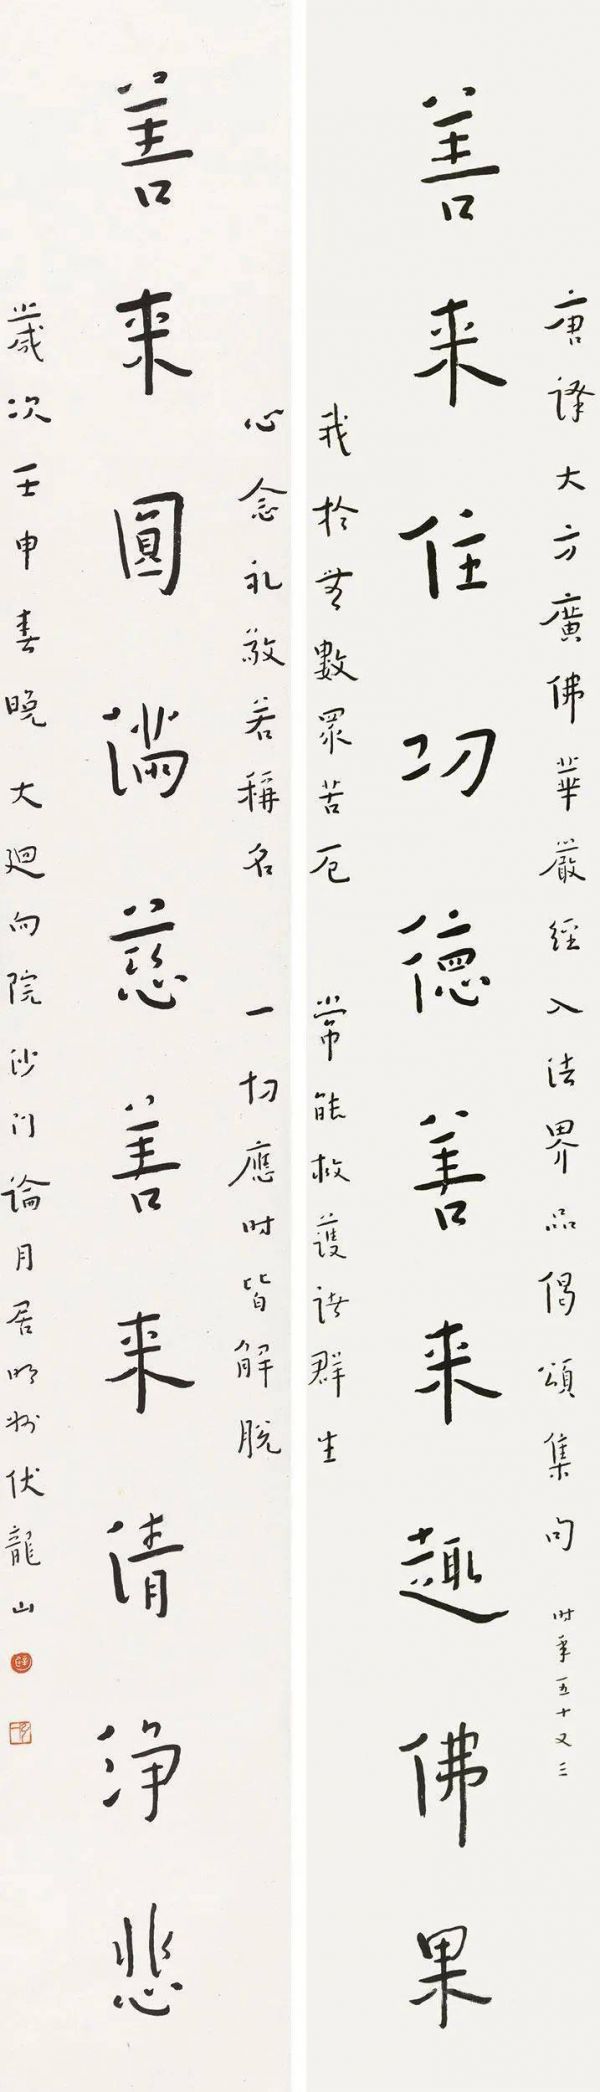 唐譯大方廣佛華嚴經入法界品偈頌集句 时年五十又三
善来住功德善来趣佛果
我於無數眾苦厄 常能救護諸群生
心念礼敬若稱名 一切應时皆解脫
善来圓滿慈善来清淨悲
歲次壬申春晚大廻向院沙门論月居明州伏龍山